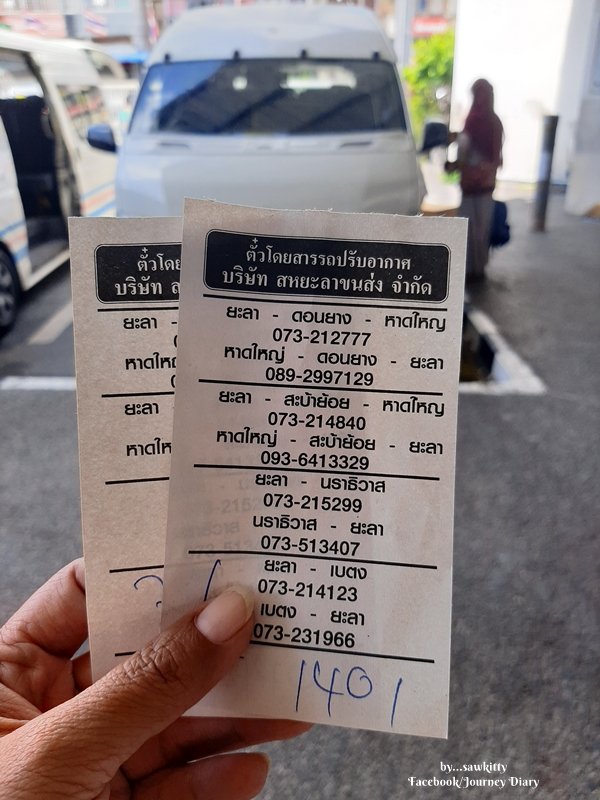 ตั๋วโดยสารรถปรับอากาศ
บริษัท สหยะลาขนส่ง จำกัด
ยะลา - ดอนยาง - หาดใหญ่
073-212777
หาดใหญ่ - ดอนยาง - ยะลา
089-2997129
ยะลา - สะบ้าย้อย - หาดใหญ่
073-214840
หาดใหญ่ - สะบ้าย้อย - ยะลา
093-6413329
ยะลา - นราธิวาส
073-215299
นราธิวาส - ยะลา
073-513407
ยะลา - เบตง
073-214123
เบตง - ยะลา
073-231966
1401
ตั๋วโดย
บริษัท ส
ยะลา -
หาดให
ยะลา
หาดให
by...sawkitty
Facebook/Journey Diary